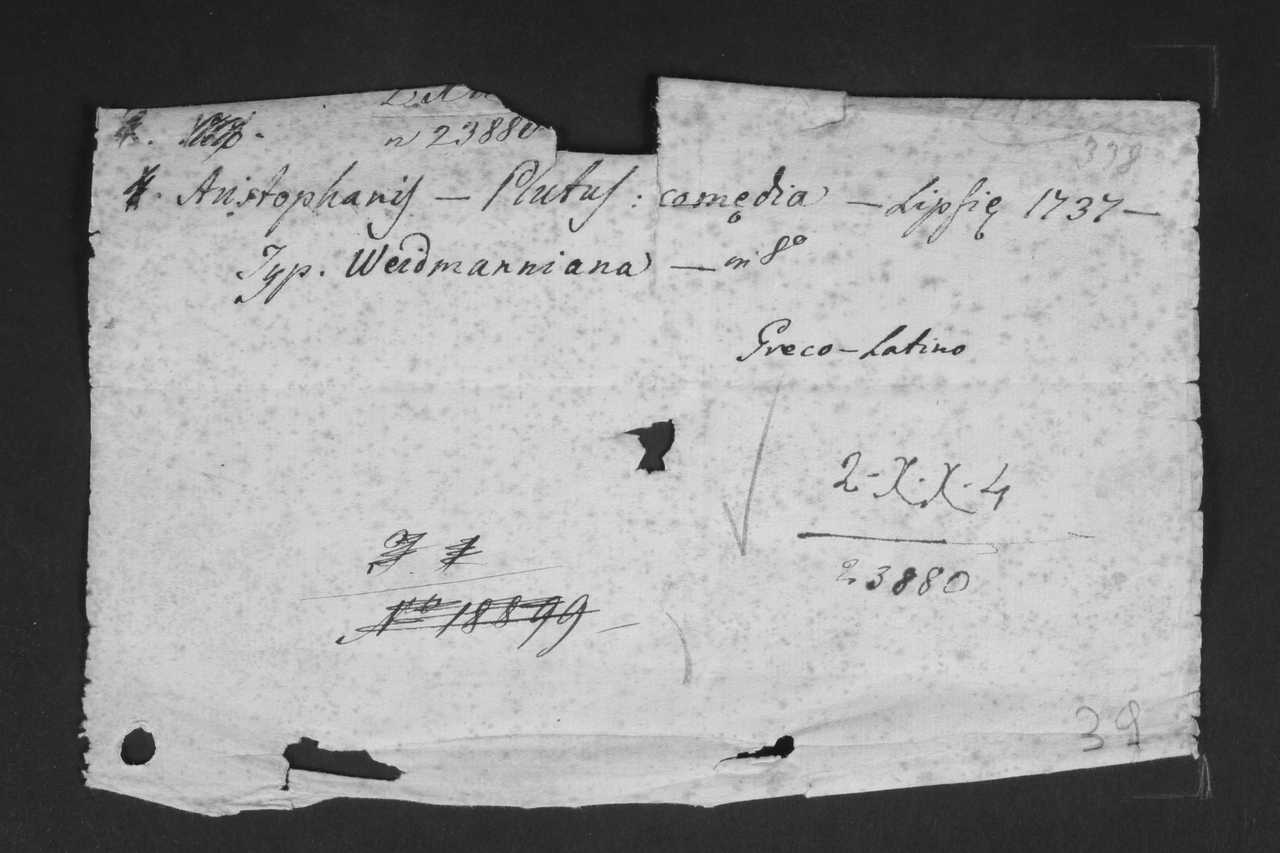 n 23880
338
4. Aristophanis — Plutus : comędia — Lipsię 1737 —
Typ. Weidmanniana — in 8º
Greco-Latino
2-X.X.4
23880
Nº 18899
39